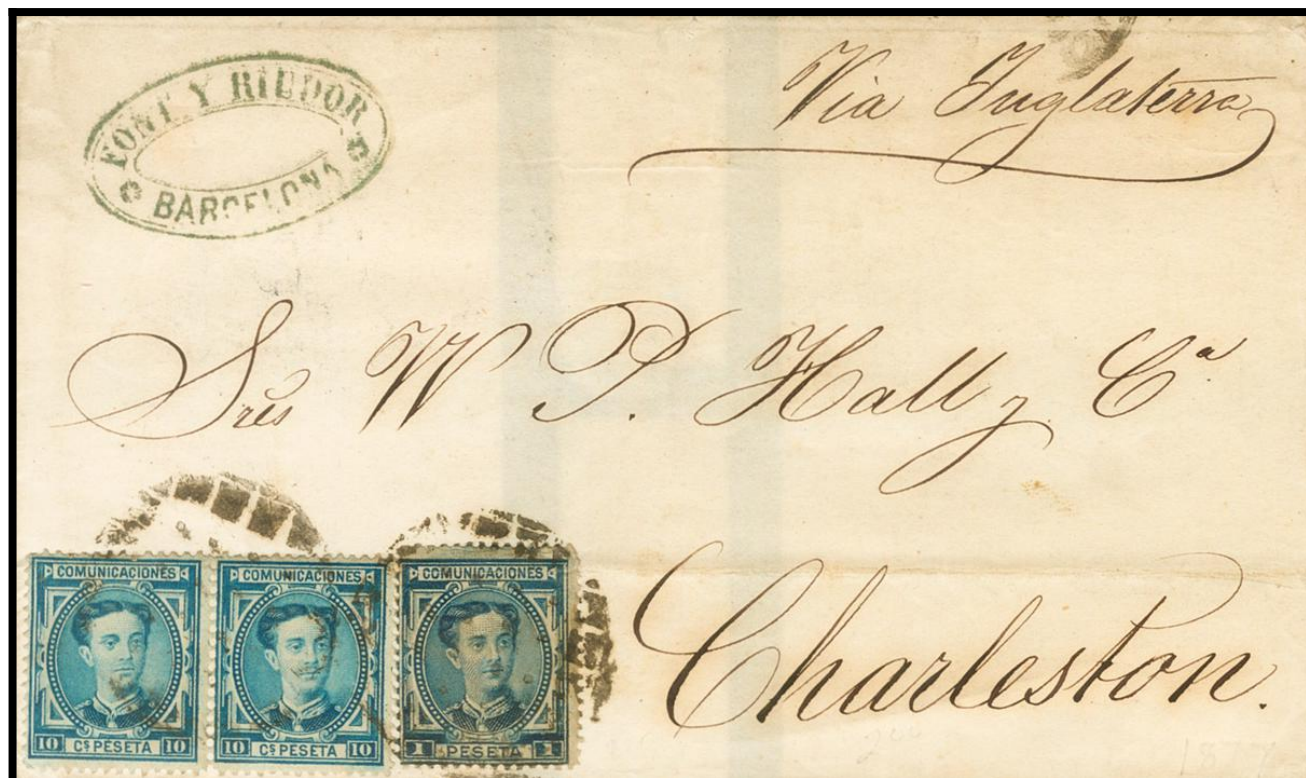 FONT Y RIUDOR
BARCELONA
Via Inglaterra
Sres W P. Hall y Cª
Charleston.
COMUNICACIONES
10 Cs PESETA 10
COMUNICACIONES
10 Cs PESETA 10
COMUNICACIONES
1 PESETA 1